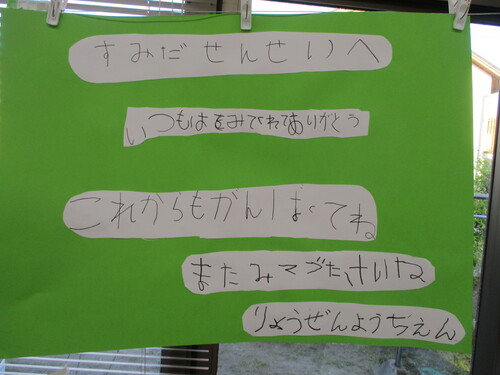 すみだせんせいへ
いつもはをみてくれてありがとう
これからもがんばってね
またみてくださいね
りょうぜんようちえん